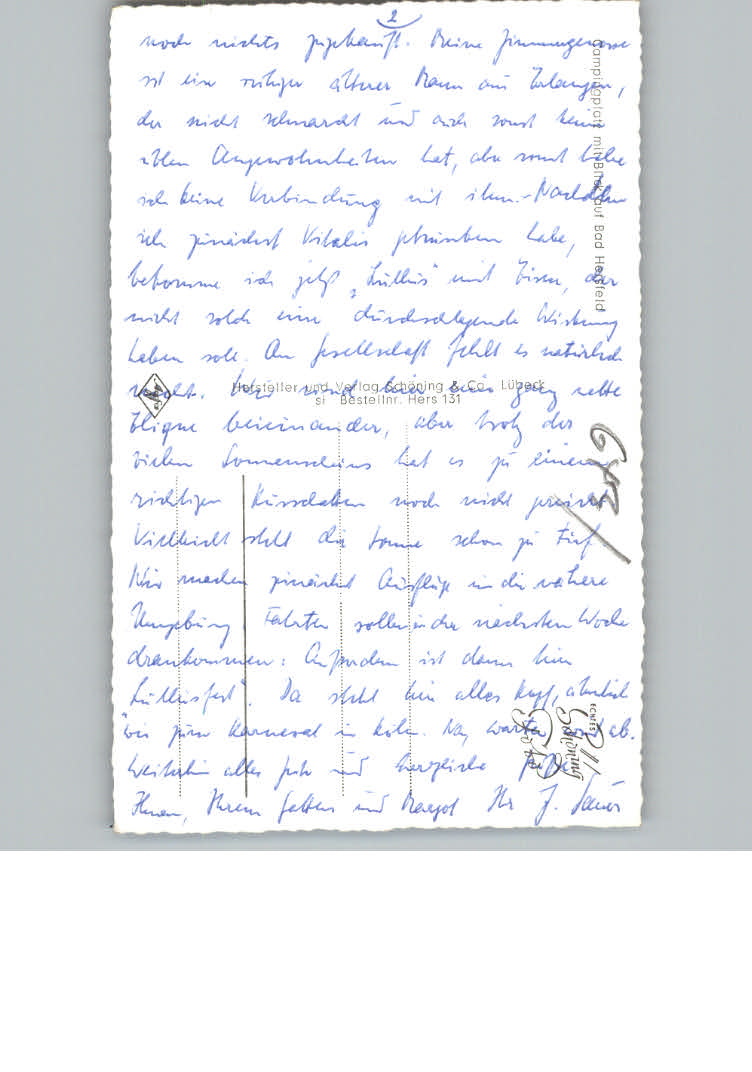 2
noch nichts zugekauft. Meine Zimmergenosse
ist ein ruhiger älterer Mann aus Erlangen,
der nicht schnarcht und auch sonst keine
üblen Angewohnheiten hat, aber sonst habe
ich keine Verbindung mit ihm. - Nachdem
ich zunächst Vitalis getrunken habe,
bekomme ich jetzt „Lullus" mit Eisen, der
nicht solch eine durchschlagende Wirkung
haben soll. An Gesellschaft fehlt es natürlich
nicht. Wir sind hier eine ganz nette
Clique beieinander, aber trotz des
vielen Sonnenscheins hat es zu einem
richtigen Kurschatten noch nicht gereicht.
Vielleicht steht die Sonne schon zu tief.
Wir machen zunächst Ausflüge in die nähere
Umgebung. Fahrten sollen in der nächsten Woche
drankommen. Außerdem ist dann hier
Lullusfest". Da steht hier alles Kopf, ähnlich
wie zum Karneval in Köln. Na, warten wir ab.
Weiterhin alles Gute und herzliche Grüße
Ihnen, Ihrem Gatten und Margot Ihr J. Sauer
Campingplatz mit Blick auf Bad Hersfeld
Hersteller und Verlag Schöning & Co., Lübeck
si Bestellnr. Hers 131
Agfa
ECHTES
Schöning